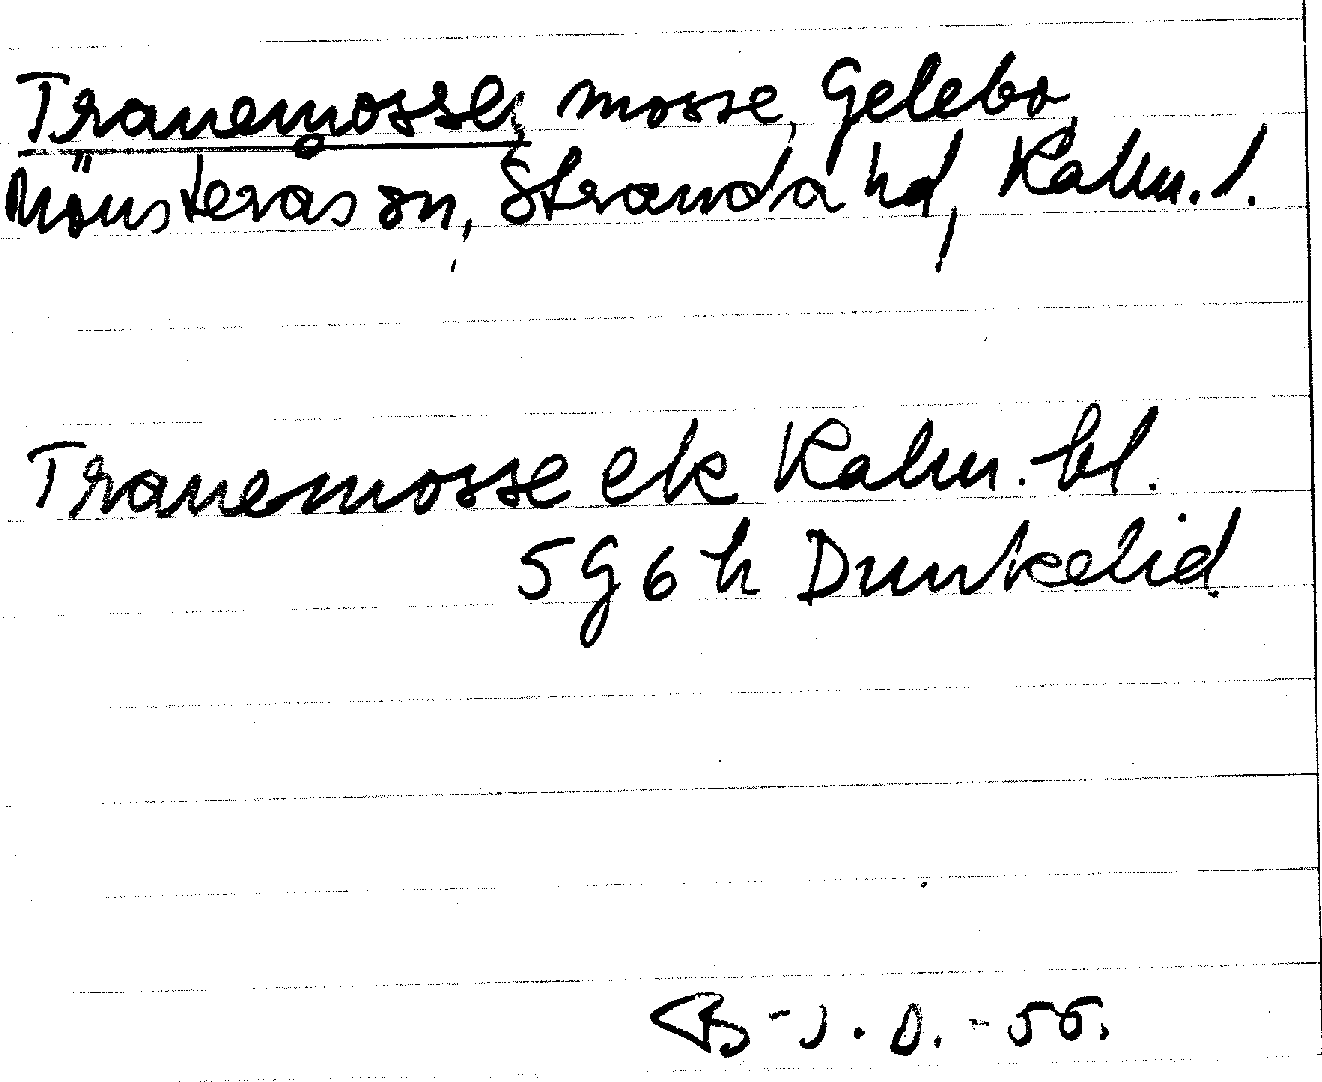 Tranemosse, mosse, Gelebo,
Mönsterås sn, Stranda hd, Kalm. l.
Tranemosse ek Kalm. bl.
5 G 6 h Dunkelid
B-J. O. -56.